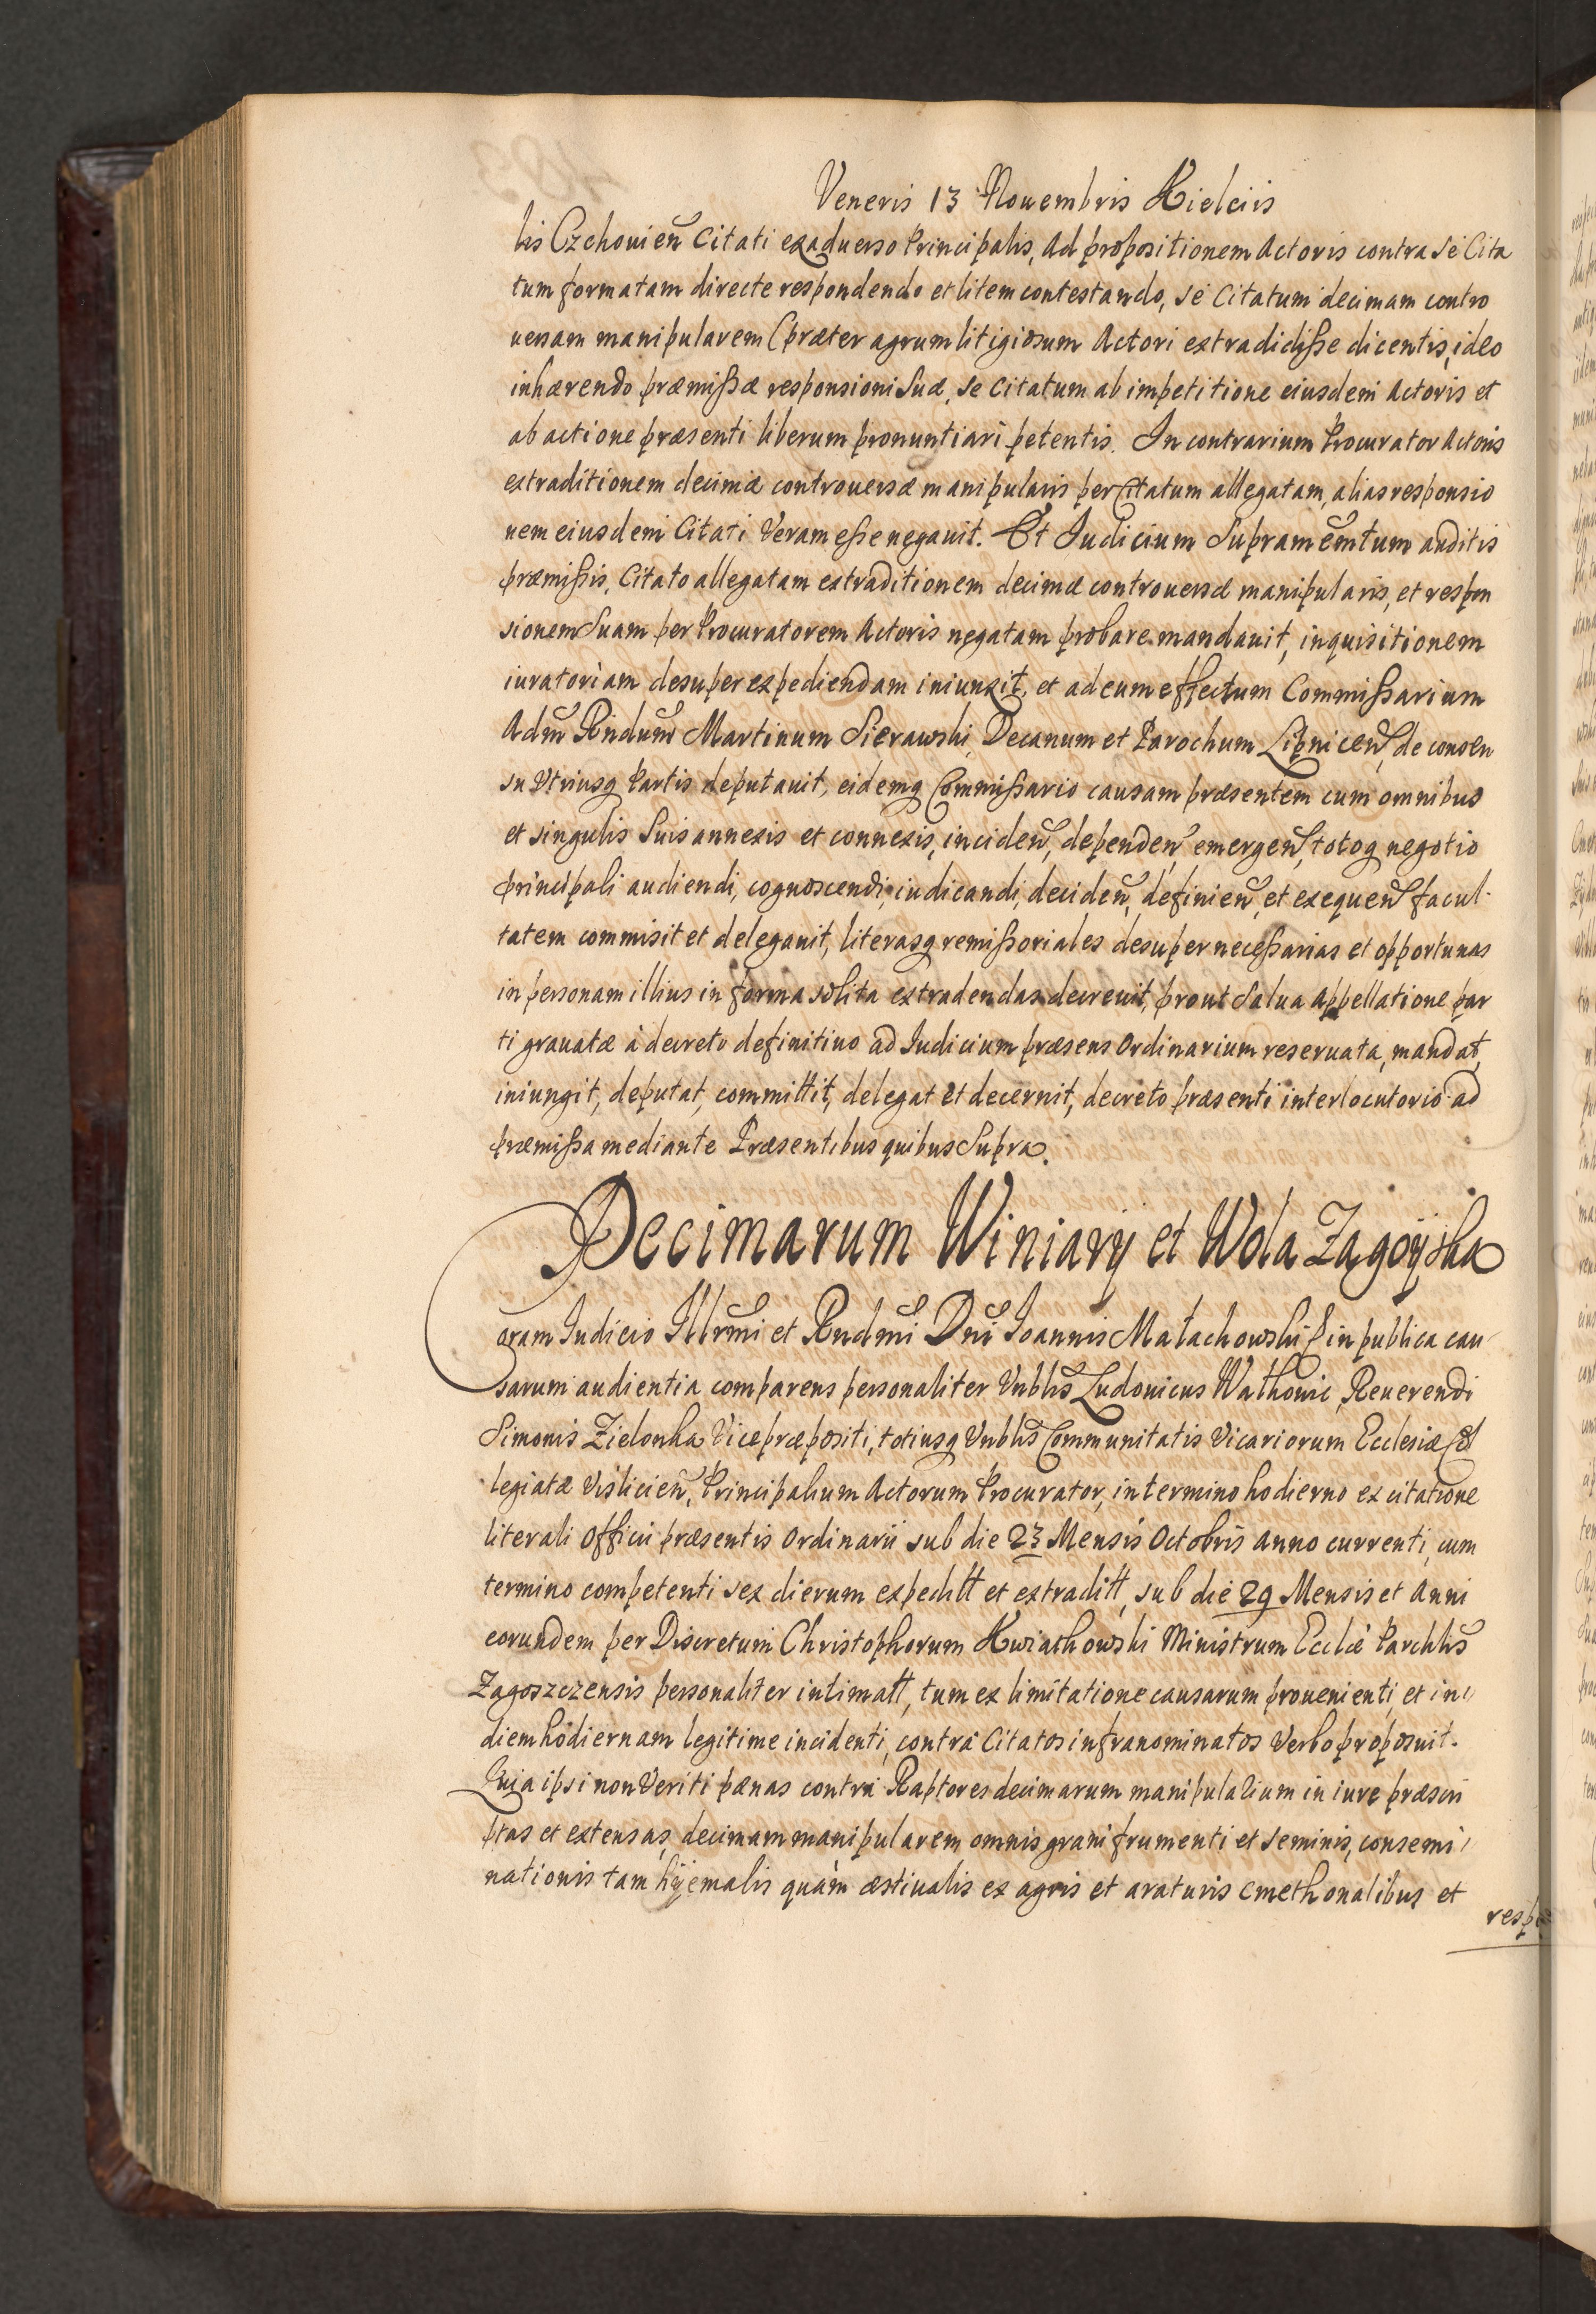 Veneris 13 Nouembris Kielciis
lis Czchouien̄ Citati exaduerso Principalis, Ad propositionem Actoris contra se Cita
tum formatam directe respondendo et litem contestando, se Citatum decimam contro
uersam manipularem (præter agrum litigiosum Actori extradidisse dicentis, ideo
inhærendo præmissæ responsioni suæ, se Citatum ab impetitione eiusdem Actoris et
ab actione præsenti liberum pronuntiari petentis. In contrarium Procurator Actoris
extraditionem decimæ controuersæ manipularis per Citatum allegatam, alias responsio
nem eiusdem Citati Veram esse negauit. Et Iudicium Supramēmtum auditis
præmissis, Citato allegatam extraditionem decimæ controuersæ manipularis, et respon
sionem Suam per Procuratorem Actoris negatam probare mandauit, inquisitionem
iuratoriam desuper expediendam iniunxit, et ad eum effectum Commissarium
Adm̄ Rndum̄ Martinum Sierawski, Decanum et Parochum Lipnicen̄, de consen
su Vtriusq Partis deputauit, eidemq Commissario causam præsentem cum omnibus
et singulis Suis annexis et connexis, inciden̄, dependen̄ emergen̄, totoq negotio
principali audiendi, cognoscendi, iudicandi, deciden̄, definien̄, et exequen̄ facul-
tatem commisit et delegauit, literasq remissoriales desuper necessarias et opportunas
in personam illius in forma solita extradendas decreuit, prout Salua Appellatione par
ti grauatæ à decreto definitiuo ad Iudicium præsens Ordinarium reseruata, mandat,
iniungit, deputat, committit, delegat et decernit, decreto præsenti interlocutorio ad
præmissa mediante Præsentibus quibus Supra.
Decimarum Winiary et Wola Zagoÿska
Coram Iudicio Illrm̄i et Rndm̄i Dn̄i Ioannis Małachowski in publica cau
sarum audientia comparens personaliter Vnblis̄ Ludouicus Wathouic, Reuerendi
Simonis Zielonka Vicepræpositi, totiusq Vnblis̄ Communitatis Vicariorum Ecclesiæ Col
legiatæ Vislicien̄, Principalium Actorum Procurator, in termino hodierno ex citatione
literali Officii præsentis Ordinarii sub die 23 Mensis Octobris Anno currenti, cum
termino competenti sex dierum expeditt et extraditt, sub die 29 Mensis et Anni
eorundem per Discretum Christophorum Kwiathowski Ministrum Ecclæ Parchlis̄
Zagoszczensis personaliter intimatt, tum ex limitatione causarum prouenienti, et in
diem hodiernam legitime incidenti, contra Citatos infranominatos Verbo proposuit.
Quia ipsi non Veriti pænas contra Raptores decimarum manipularium in iure præscri
ptas et extensas, decimam manipularem omnis grani frumenti et seminis, consemi
nationis tam hÿemalis quàm æstiualis ex agris et araturis cmethonalibus et